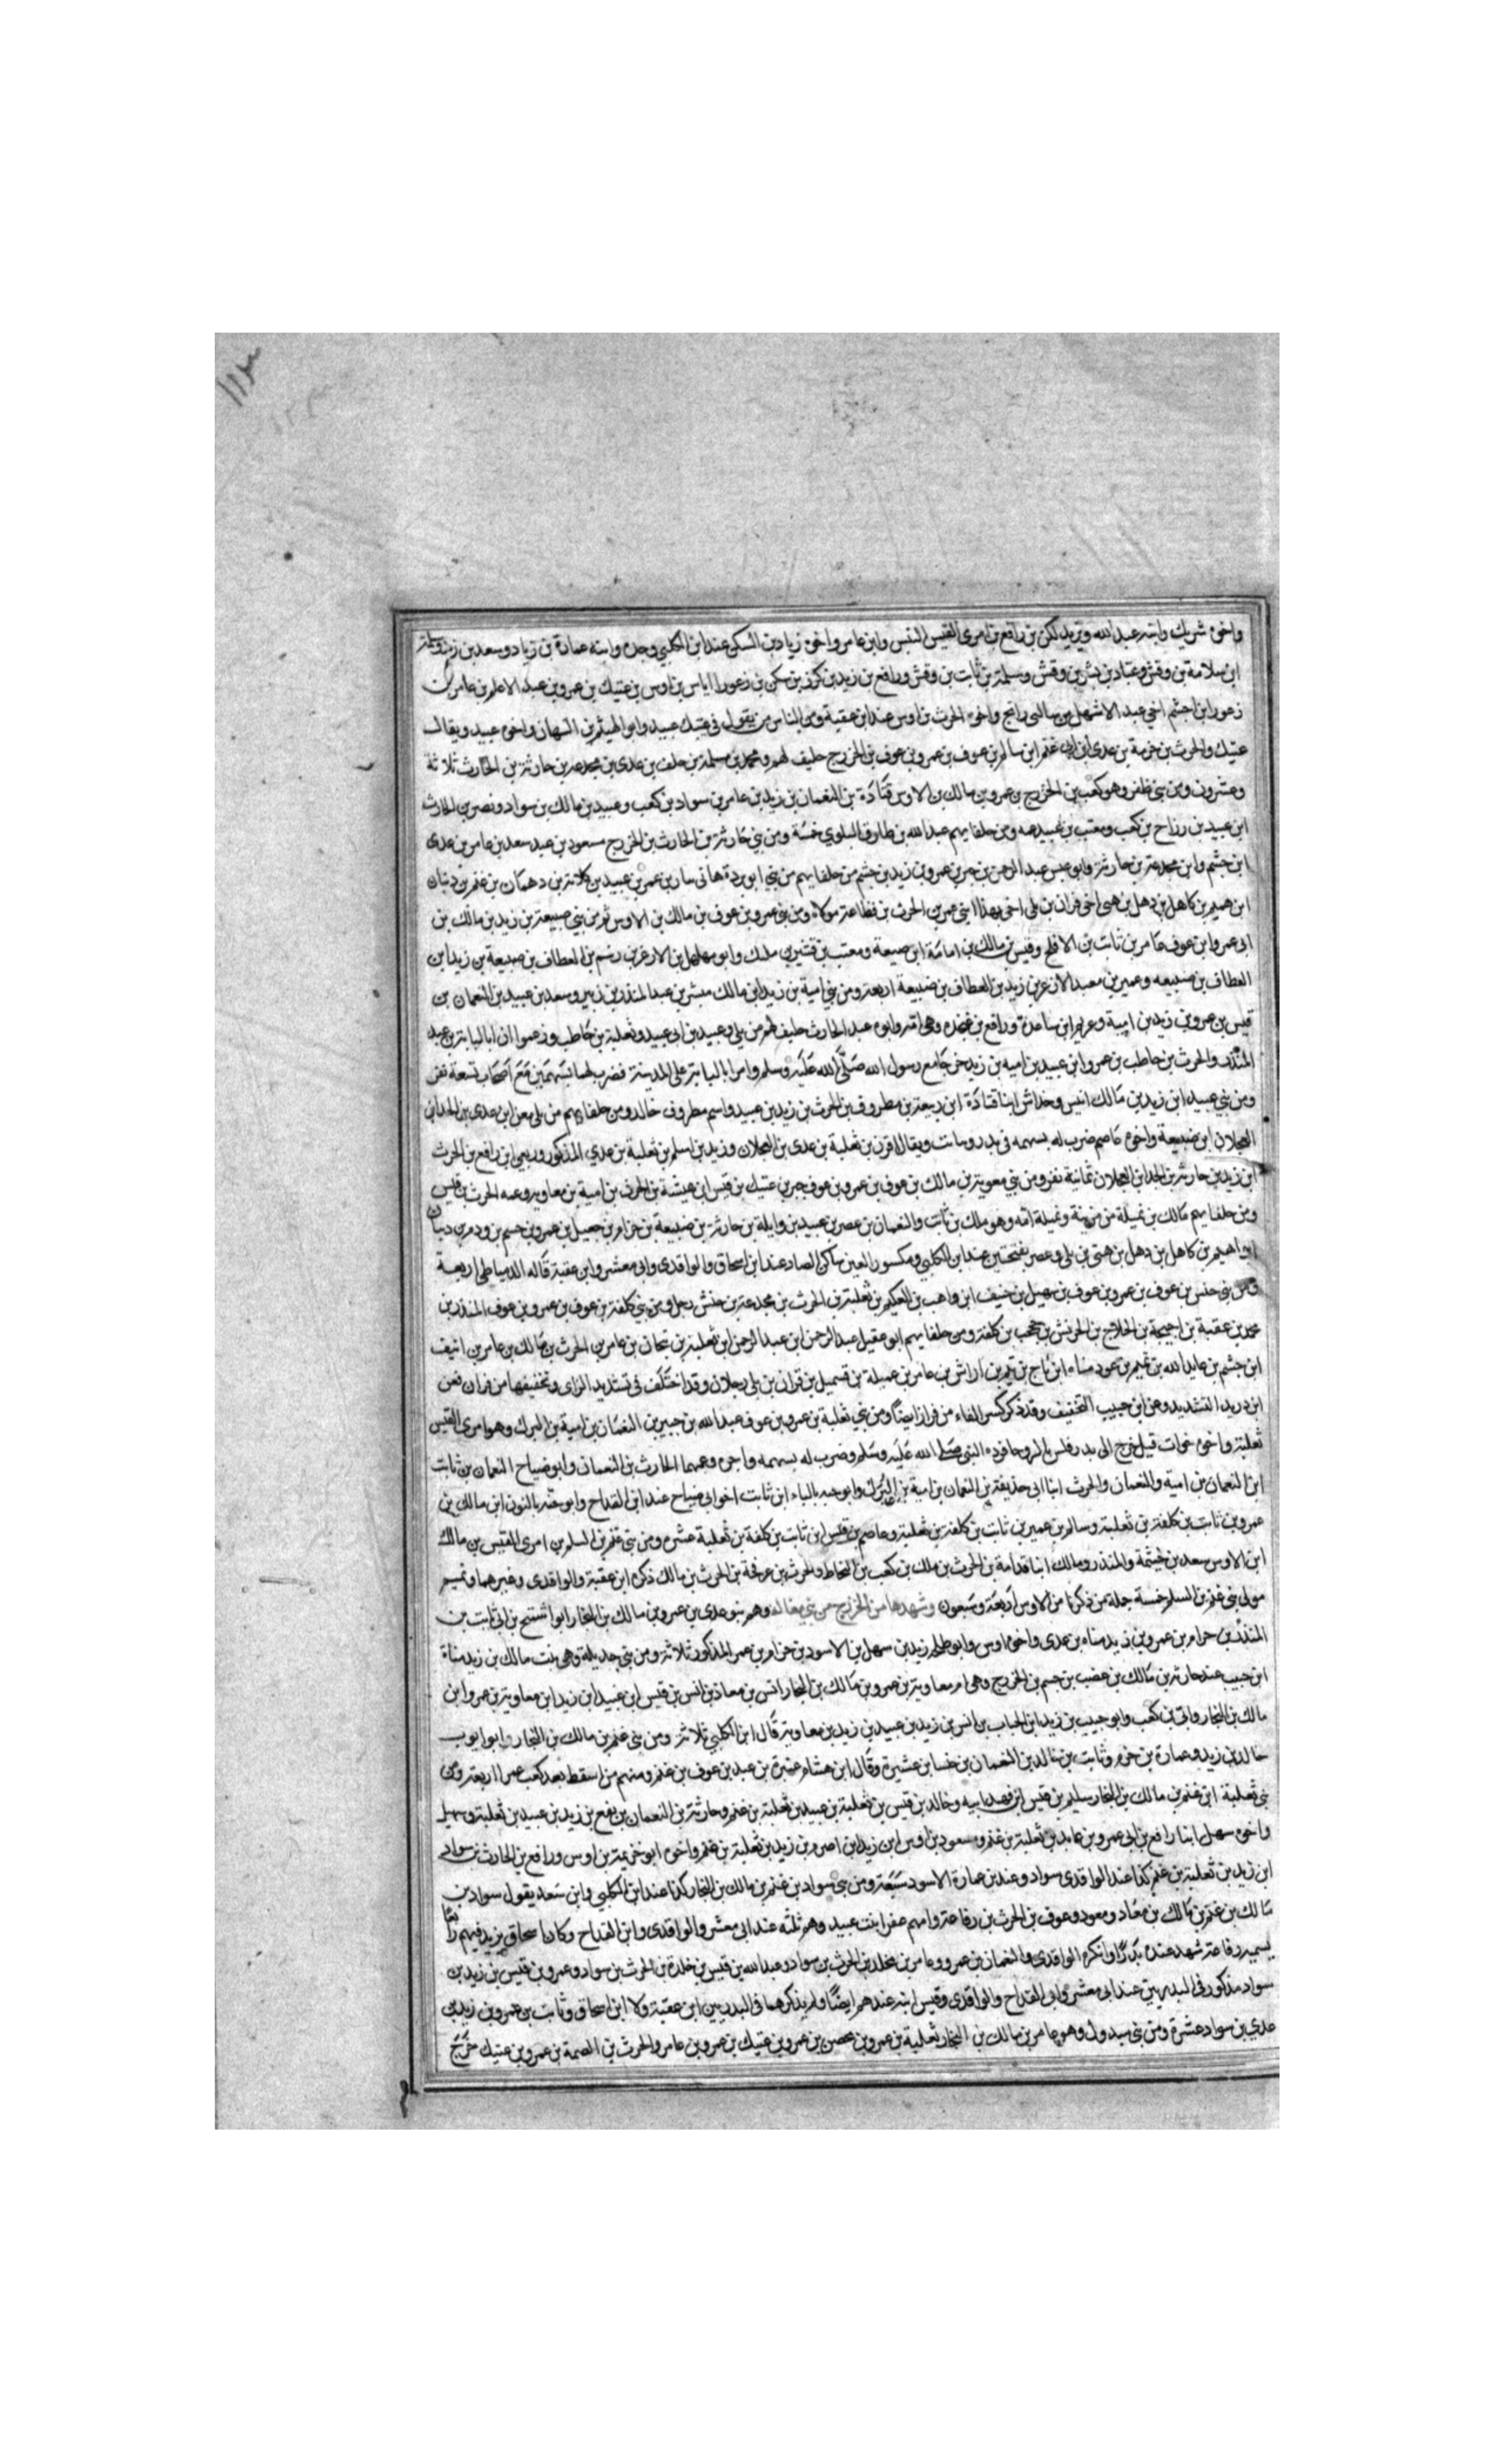 واخوه شريك وابنه عبد الله ويزيد لكن بن رافع بن امرى القيس النفس وابن عامر واخوه زياد بن السكن عند ابن الكلبي وحده وابنه عمارة بن زياد وسعد بن زيد وسلمة
ابن سلامة بن وقش وعباد بن بشر بن وقش وسلمة بن ثابت بن وقش ورافع بن زيد بن كرز بن سكن بن زعورا اياس بن اوس بن عتيك بن عمرو بن عبد الاعلم بن عامر بن
زعورا بن اجشم اخي عبد الاشهل من ساكنى راتج واخوه الحرث بن اوس عند ابن عقبة ومن الناس من يقول فى عتيك عبيد وابو الهيثم بن التيهان واخوه عبيد ويقال
عتيك والحرث بن خزمة بن عدى ابن ابى غنم ابن سالم بن عوف بن عمرو بن عوف بن الخزرج حليف لهم ومحمد بن مسلمة بن خلف بن عدى بن مجدعه بن حارثة بن الحارث ثلاثة
وعشرون ومن بني ظفر وهو كعب بن الخزرج بن عمرو بن مالك بن الاوس قتادة بن النعمان بن زيد بن عامر بن سواد بن كعب وعبيد بن مالك بن سواد ونصر بن الحارث
ابن عبيد بن رزاح بن كعب ومعتب بن عبيد عمه ومن حلفايهم عبد الله بن طارق البلوي خمسة ومن بني حارثة بن الحارث بن الخزرج مسعود بن عبد سعد بن عامر بن عدى
ابن جشم وابن مجدعة بن حارثة وابو عبس عبد الرحمن بن جبر بن عمرو بن زيد بن جشم من حلفايهم من بني ابو بردة هانى بن عمرو بن عبيد بن كلاب بن دهمان بن غنم بن دبيان
ابن هميم بن كاهل بن دهل بن هنى اخى فران بن بلى اخى بهذا ابنى عمرو بن الحرث بن قضاعة مولاه ومن بني عمرو بن عوف بن مالك بن الاوس ثم من بني ضبيعة بن زيد بن مالك بن
ابى عمرو ابن عوف عامر بن ثابت بن الاقلح وقيس بن مالك بن امامة ابن ضبيعة ومعتب بن قشير بن مليك وابو مهلهل بن الازعر بن زيد بن العطاف بن ضبيعة بن زيد ابن
العطاف بن ضبيعه وعمير بن معبد الازعر بن زيد بن العطاف بن ضبيعة اربعة ومن بني امية بن زيد ابن مالك مبشر بن عبد المنذر بن زنبر وسعد بن عبيد بن النعمان بن
قيس بن عمرو بن زيد بن امية وعويم ابن ساعدة ورافع بن عنجده وهى امه وابوه عبد الحارث حليف لهم من بلى وعبيد بن ابى عبيد وثعلبة بن حاطب وزعموا ان ابا لبابة بن عبد
المنذر والحرث بن حاطب بن عمرو ابن عبيد بن اميه بن زيد خرجا مع رسول الله صلى الله عليه وسلم وامر ابا لبابة على المدينة فضرب لهما بسهمين مع اصحاب تسعة نفر
ومن بني عبيد ابن زيد بن مالك انيس وخداش ابنا قتادة ابن ربيعة بن مطروف بن الحرث بن زيد بن عبيد واسم مطروف خالد ومن حلفايهم من بلى معن ابن عدى بن الجد ابن
العجلان ابن ضبيعة واخوه عاصم ضرب له بسهمه فى بدر وثابت ويقال اقرن بن ثعلبة بن عدى بن العجلان وزيد بن اسلم بن ثعلبة بن عدي المذكور وربعى ابن رافع بن الحرث
ابن زيد بن حارثة بن الجد ابن العجلان ثمانية نفر ومن بني معوية بن مالك بن عوف بن عمرو بن عوف جبر بن عتيك بن قيس ابن هيشة بن الحرث بن امية بن معاوية وعمه الحرث بن قيس
ومن حلفايهم مالك بن نميلة من مزينة ونميلة امه وهو ملك بن ثابت والنعمان بن عصر بن عبيد بن وايلة بن حارثة بن ضبيعة بن حزام بن جعيل بن عمرو بن جشم بن ودم بن دبيان
ابن هميم بن كاهل بن دهل بن هنى بن بلى وعصر بفتحتين عند ابن الكلبي ومكسور العين ساكن الصاد عند ابن اسحاق والواقدى وابى معشر وابن عقبة قاله الدمياطى اربعة
ومن بني حنس بن عوف بن عمرو بن عوف بن سهيل بن حنيف ابن واهب بن العكيم بن ثعلبة بن الحرث بن مجدعة بن حنش رجل ومن بني كلفة بن عوف بن عمرو بن عوف المنذر بن
محمد بن عقبة بن احيحة بن الجلاح بن الحريش بن جحجب بن كلفة ومن حلفايهم ابو عقيل عبد الرحمن ابن عبد الرحمن ابن ثعلبة بن بيحان بن عامر بن الحرث بن مالك بن عامر بن انيف
ابن جشم بن عايد الله بن تميم بن عود مناه ابن ناج بن تيم بن اراش بن عامر بن عبيلة بن قسميل بن فران بن بلى رجلان وقد اختلف فى تشديد الزاى وتخفيفها من فران فعن
ابن دريد التشديد وعن ابن حبيب التخفيف وقد ذكر كسر الفاء من فرار ايضا ومن بني ثعلبة بن عمرو بن عوف عبد الله بن جبير بن النعمان بن امية بن البرك وهو امرى القيس
ثعلبة واخوه خوات قيل خرج الى بدر فلس بالروحا فرده النبى صلى الله عليه وسلم وضرب له بسهمه واجره وعمهما الحارث بن النعمان وابو ضياح النعمان بن ثابت
ابن النعمان بن اميه والنعمان والحرث ابنا ابى حذيفة بن النعمان بن امية بن البرك وابو حبه بالباء ابن ثابت اخو ابى ضياح عند ابن القداح وابو حنه بالنون ابن مالك بن
عمرو بن ثابت بن كلفة بن ثعلبة وسالم بن عمير بن ثابت بن كلفة بن ثعلبة وعاصم بن قيس ابن ثابت بن كلفة بن ثعلبة عشره ومن بني غنم بن السلم بن امرى القيس بن مالك
ابن الاوس سعد بن خيثمة والمنذر ومالك ابنا قدامة بن الحرث بن ملك بن كعب بن النحاط والحرث بن عرفجة بن الحرث بن مالك ذكره ابن عقبة والواقدى وغيرهما وتميم
مولى بني غنم بن السلم خمسة جملة من ذكرنا من الاوس اربعة وسبعون وشهدها من الخزرج من بني مغاله وهم بنو عدى بن عمرو بن مالك بن النجار ابو شيخ بن ابى ثابت بن
المنذر بن حرام بن عمرو بن زيد مناه بن عدى واخوه اوس وابو طلحه زيد بن سهل بن الاسود بن حزام بن عمر المذكور ثلاثة ومن بني جديلة وهى بنت مالك بن زيد مناة
ابن حبيب عند حارثه بن مالك بن غضب بن جشم بن الخزرج وهى ام معاوية بن عمرو بن مالك بن النجار انس بن معاذ بن انس بن قيس ابن عبيد ابن زيد ابن معاوية بن عمرو ابن
مالك بن النجار وابى بن كعب وابو حبيب بن زيد ابن الحباب بن انس بن زيد بن عبيد بن زيد بن معاوية قال ابن الكلبي ثلاثة ومن بني غنم بن مالك بن النجار وابو ايوب
خالد بن زيد وعمارة بن حزم وثابت بن خالد بن النعمان بن خنسا بن عشيرة وقال ابن هشام عشيرة بن عبد بن عوف بن غنم ومنهم من اسقط بعد كعب عمرا اربعة ومن
بني ثعلبة ابن غنم بن مالك بن النجار سليم بن قيس ابن فهد ابيه وخالد بن قيس بن ثعلبة بن عبيد بن ثعلبة بن غنم وحارثة بن النعمان بن نفع بن زيد بن عبيد بن ثعلبة وسهيل
واخوه سهل ابنا رافع بن ابى عمرو بن عايد بن ثعلبة بن غنم ومسعود بن اوس ابن زيد بن اصرم بن زيد بن ثعلبة بن غنم واخوه ابو خزيمة بن اوس ورافع بن الحارث بن سواد
ابن زيد بن ثعلبة بن غنم كذا عند الواقدى سواد وعند بن عمارة الاسود سبعة ومن بني سواد بن غنم بن مالك بن النجار كذا عند ابن الكلبي وابن سعد يقول سواد بن
مالك بن غنم بن مالك بن معاذ ومعوذ وعوف بن الحرث بن رفاعة وامهم عفرا بنت عبيد وهم ثلثه عند ابى معشر والواقدى وابن القداح وكان اسحاق يزيد فيهم رابعا
يسميه رفاعة شهد عنده بدرا وانكره الواقدى والنعمان بن عمرو وعامر بن مخلد بن الحرث بن سواد وعبد الله بن قيس بن خلدة بن الحرث بن سواد وعمرو بن قيس بن زيد بن
سواد مذكور فى البدريين عند ابى معشر وابن القداح والواقدى وقيس ابنه عندهم ايضا ولم يذكرهما فى البدريين ابن عقبة ولا ابن اسحاق وثابت بن عمرو بن زيد بن
عدي بن سواد عشرة ومن بني مبدول وهو عامر بن مالك بن النجار ثعلبة بن عمرو بن محصن بن عمرو بن عتيك بن عمرو بن عامر والحرث بن الصمة بن عمرو بن عتيك خرج